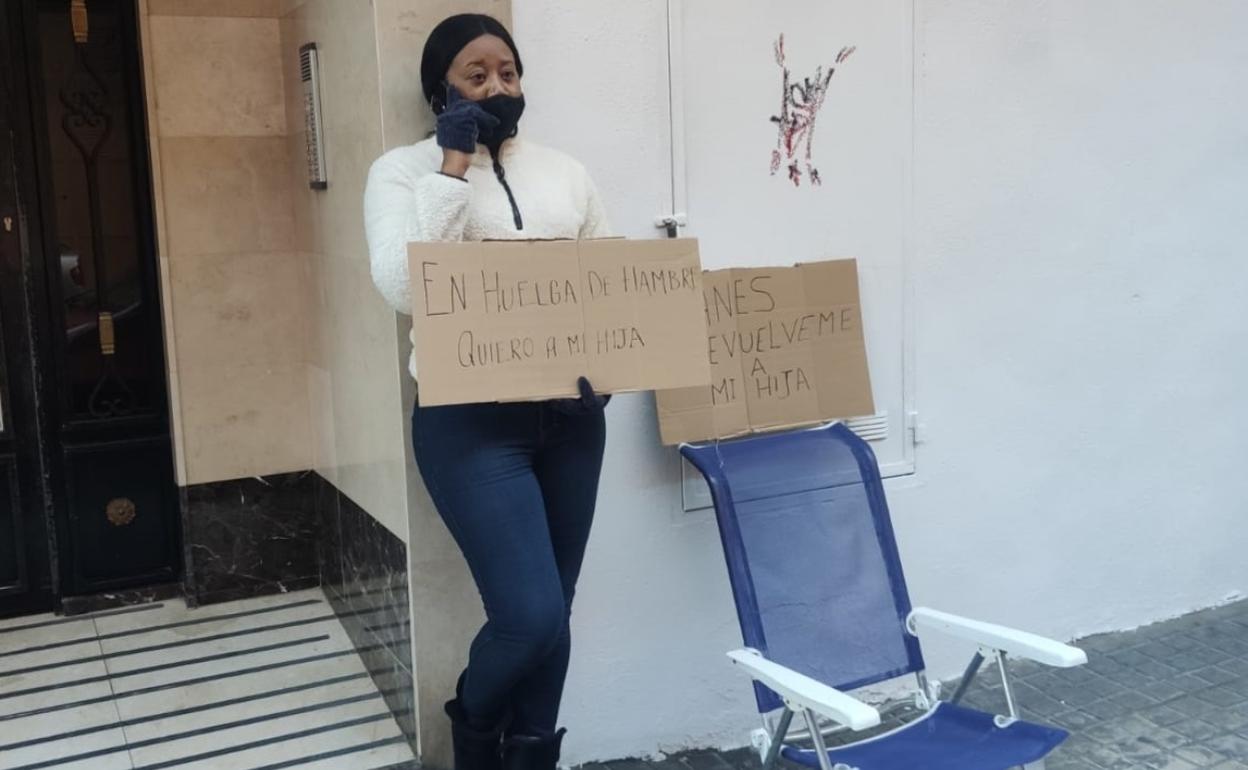 EN HUELGA DE HAMBRE
QUIERO A MI HIJA
ANES
EVUELVEME
A
MI HIJA